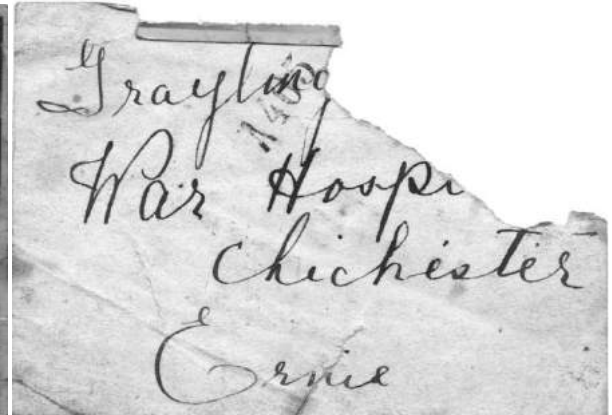 Grayling
War Hospi
Chichester
Ernie